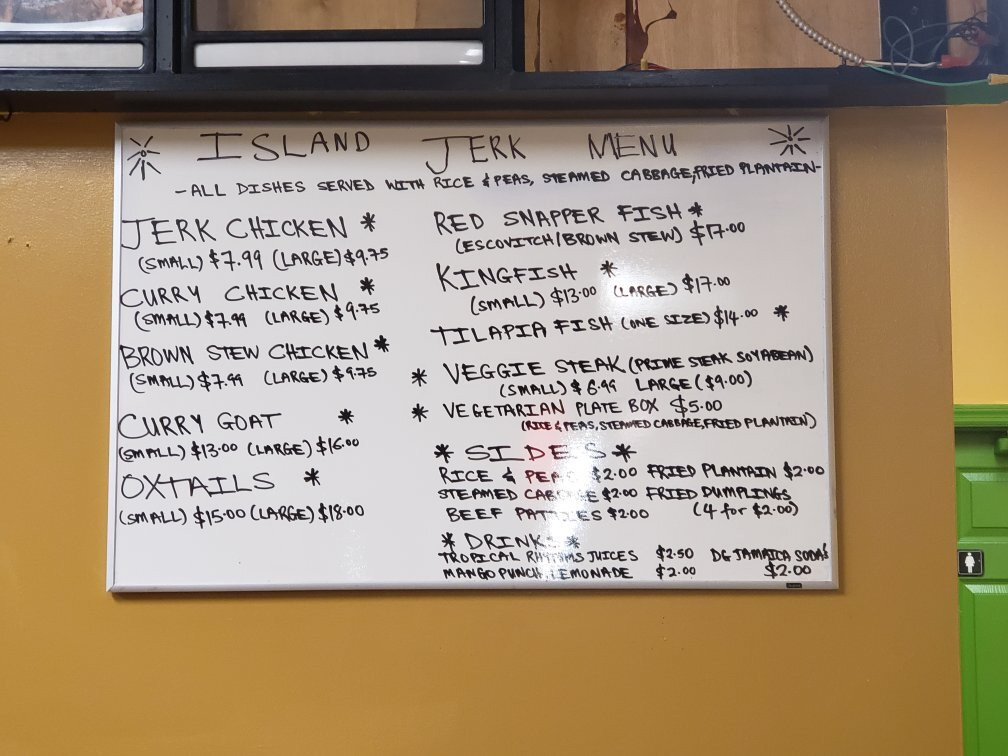 ISLAND JERK MENU
-ALL DISHES SERVED WITH RICE & PEAS, STEAMED CABBAGE, FRIED PLANTAIN-
JERK CHICKEN *
(SMALL) $7.99 (LARGE) $9.75
CURRY CHICKEN *
(SMALL) $7.99 (LARGE) $9.75
BROWN STEW CHICKEN *
(SMALL) $7.99 (LARGE) $9.75
CURRY GOAT *
(SMALL) $13.00 (LARGE) $16.00
OXTAILS *
(SMALL) $15.00 (LARGE) $18.00
RED SNAPPER FISH *
(ESCOVITCH/BROWN STEW) $17.00
KINGFISH *
(SMALL) $13.00 (LARGE) $17.00
TILAPIA FISH (ONE SIZE) $14.00 *
* VEGGIE STEAK (PRIME STEAK SOYABEAN)
(SMALL) $6.99 LARGE ($9.00)
* VEGETARIAN PLATE BOX $5.00
(RICE & PEAS, STEAMED CABBAGE, FRIED PLANTAIN)
* SIDES *
RICE & PEAS $2.00 FRIED PLANTAIN $2.00
STEAMED CABBAGE $2.00 FRIED DUMPLINGS
BEEF PATTIES $2.00 (4 for $2.00)
* DRINKS *
TROPICAL RHYTHMS JUICES $2.50 DG JAMAICA SODA's
MANGO PUNCH, LEMONADE $2.00 $2.00